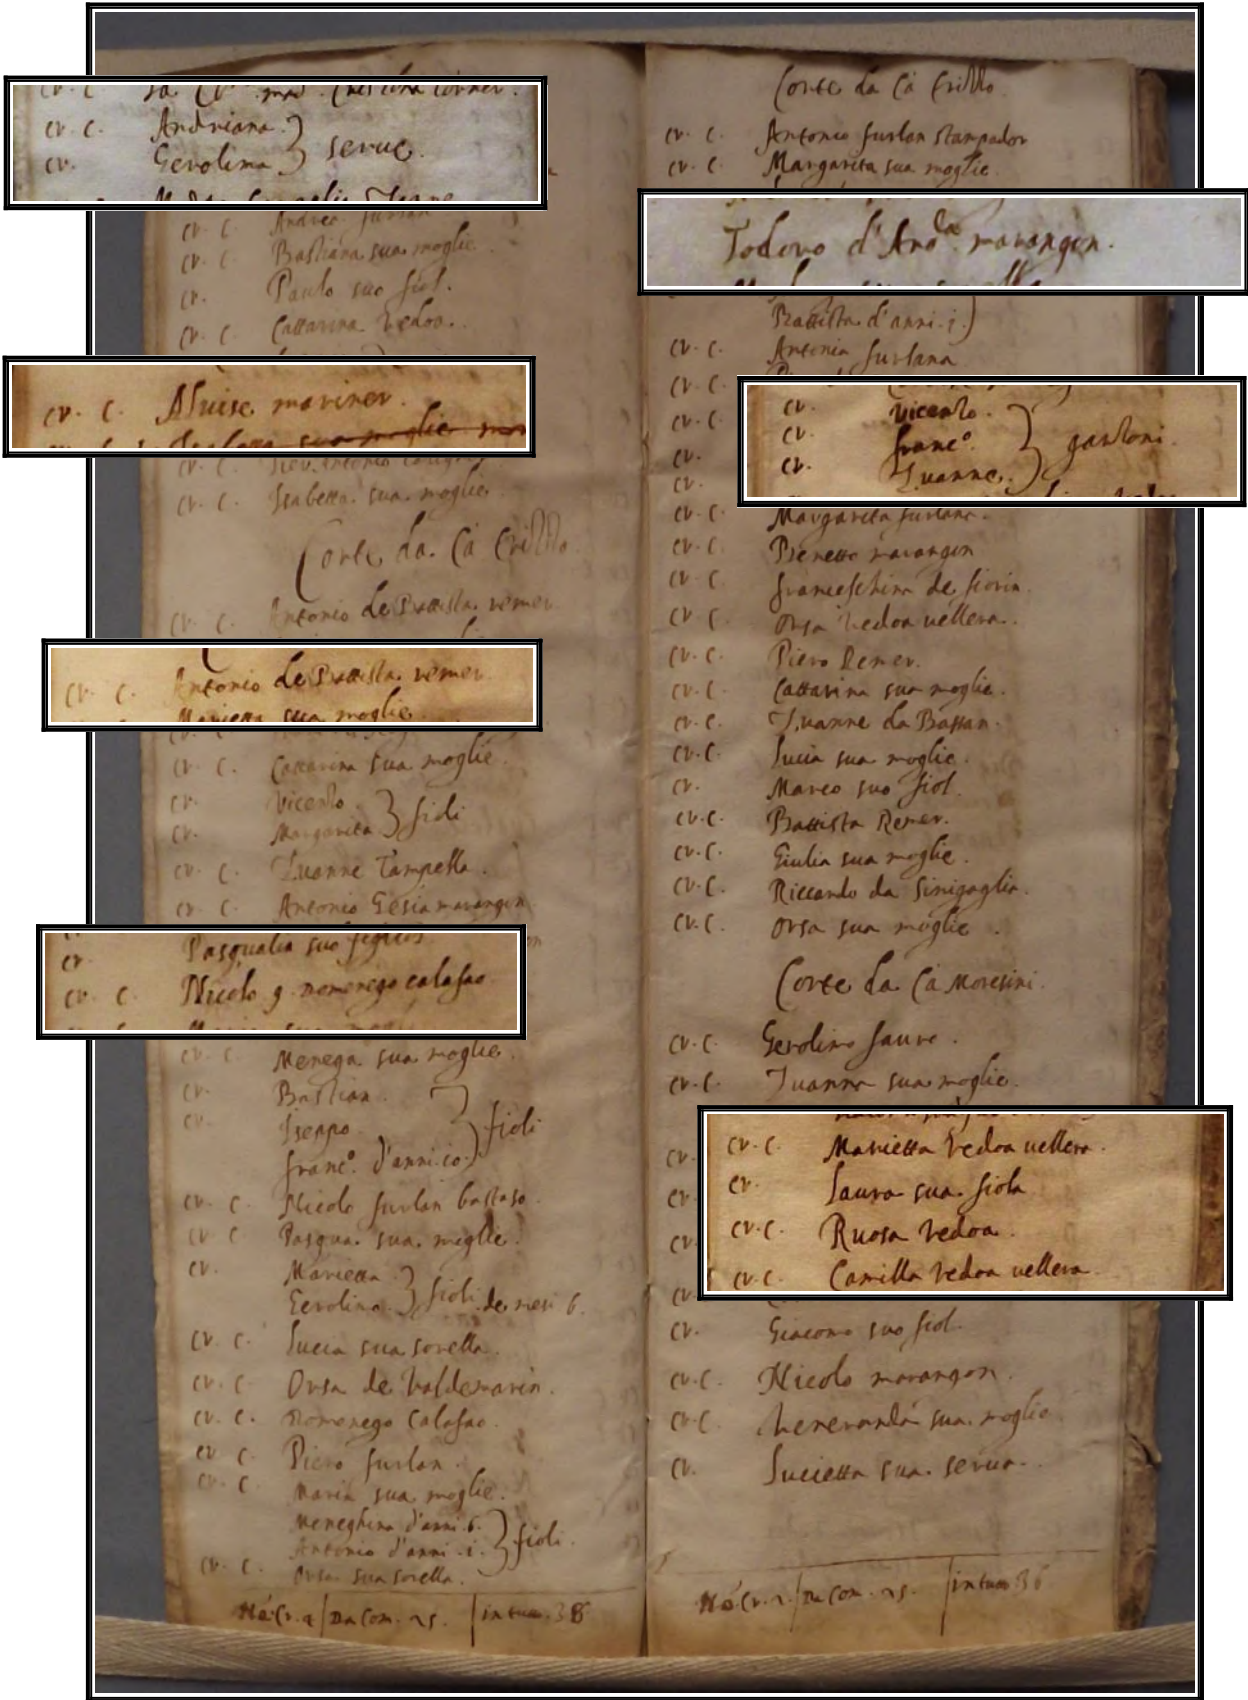 cr. c.
cr. c. Andriana
cr. Gerolima } serue.
cr. c. Andrea furlan
cr. c. Bastiana sua moglie
cr. Paulo suo fiol.
cr. c. Cattarina vedoa.
cr. c. Aluise mariner.
sua moglie
cr. c.
cr. c. Isabetta sua moglie
Corte da Cà Grillo
cr. c. Antonio de Battista remer
cr. c. Antonio de Battista remer.
Marietta sua moglie
cr. c. Cattarina sua moglie.
cr. Vicenzo
cr. Margarita } fioli
cr. c. Zuanne Tampella.
cr. c. Antonio Gesia marangon
cr. Pasqualin suo
cr. c. Nicolo q. Domenego calafao
cr. c. Menega sua moglie.
cr. Bastian
cr. Iseppo
franc.o d'anni .10. } fioli
cr. c. Nicolo furlan bastaso.
cr. c. Pasqua sua moglie.
cr. Marietta
Gerolima } fioli de mesi 6.
cr. c. Lucia sua sorella.
cr. c. Orsa de Valdemarin.
cr. c. Domenego Calafao.
cr. c. Piero furlan.
cr. c. Maria sua moglie.
Meneghina d'anni .6.
Antonio d'anni .i. } fioli.
cr. c. Orsa sua sorella.
Da Com. 25. | in tutto 38
Corte da Cà Grillo.
cr. c. Antonio furlan stampador
cr. c. Margarita sua moglie.
Todero d'And.a marangon.
Battista d'anni .i. )
cr. c. Antonia furlana
cr. c.
cr. c.
cr. Vicenzo.
cr. franc.o
cr. Zuanne. } garzoni.
cr. c. Margarita furlana.
cr. c. Benetto marangon
cr. c. Franceschina de fiorin.
cr. c. Orsa vedoa uellera.
cr. c. Piero Remer.
cr. c. Cattarina sua moglie.
cr. c. Zuanne da Bassan.
cr. c. Lucia sua moglie.
cr. Marco suo fiol.
cr. c. Battista Remer.
cr. c. Giulia sua moglie.
cr. c. Riccardo da Sinigaglia.
cr. c. Orsa sua moglie.
Corte da Cà Moresini.
cr. c. Gerolimo fauro.
cr. c. Zuanna sua moglie.
cr. c. Marietta vedoa uellera.
cr. Laura sua fiola
cr. c. Ruosa vedoa.
cr. c. Camilla vedoa uellera
cr. Giacomo suo fiol.
cr. c. Nicolo marangon.
cr. c. Veneranda sua moglie
cr. Lucietta sua serua.
Da Com. 25. | in tutto 36